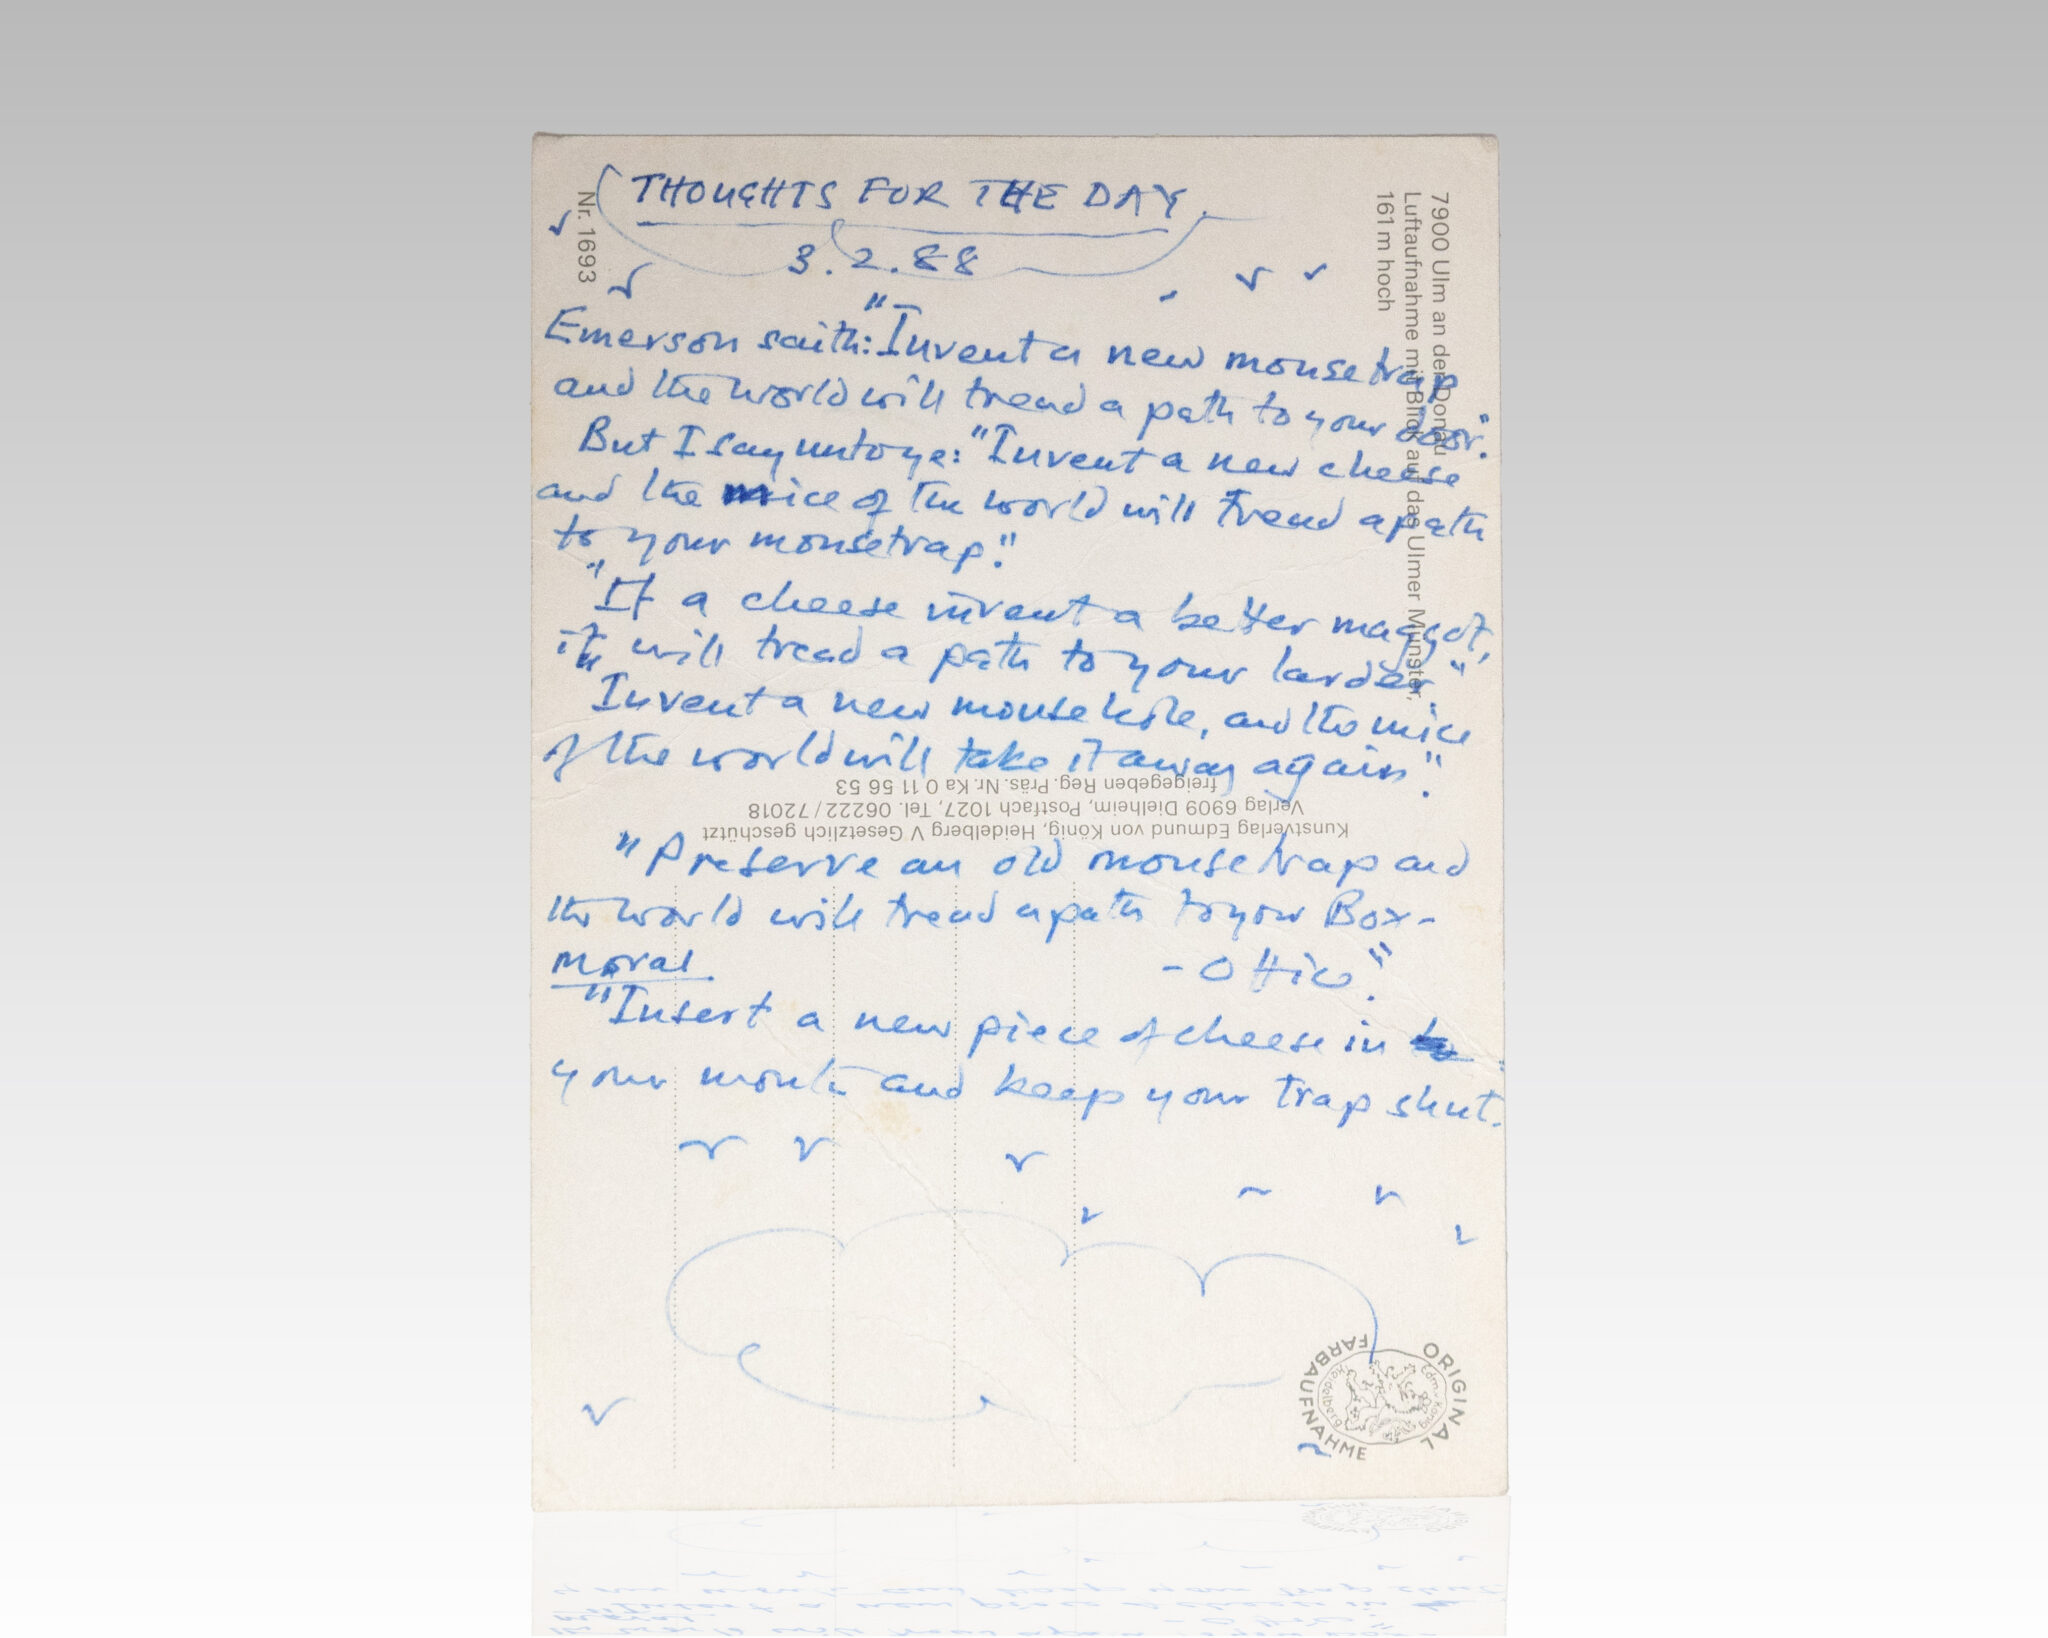 THOUGHTS FOR THE DAY.
3.2.88
Emerson saith: "Invent a new mousetrap
and the world will tread a path to your door".
But I say unto ye: "Invent a new cheese
and the mice of the world will tread a path
to your mousetrap."
"If a cheese invent a better maggot,
it will tread a path to your larder"
"Invent a new mousehole, and the mice
of the world will take it away again".
"Preserve an old mousetrap and
the world will tread a path to your Box-
- Office".
moral.
"Insert a new piece of cheese in
your mouth and keep your trap shut.
Nr. 1693
7900 Ulm an der Donau
Luftaufnahme mit Blick auf das Ulmer Münster,
161 m hoch
Kunstverlag Edmund von König, Heidelberg V Gesetzlich geschützt
Verlag 6909 Dielheim, Postfach 1027, Tel. 06222/72018
freigegeben Reg. Präs. Nr. Ka 0 11 56 53
ORIGINAL
FARBAUFNAHME
Edm. König
Heidelberg